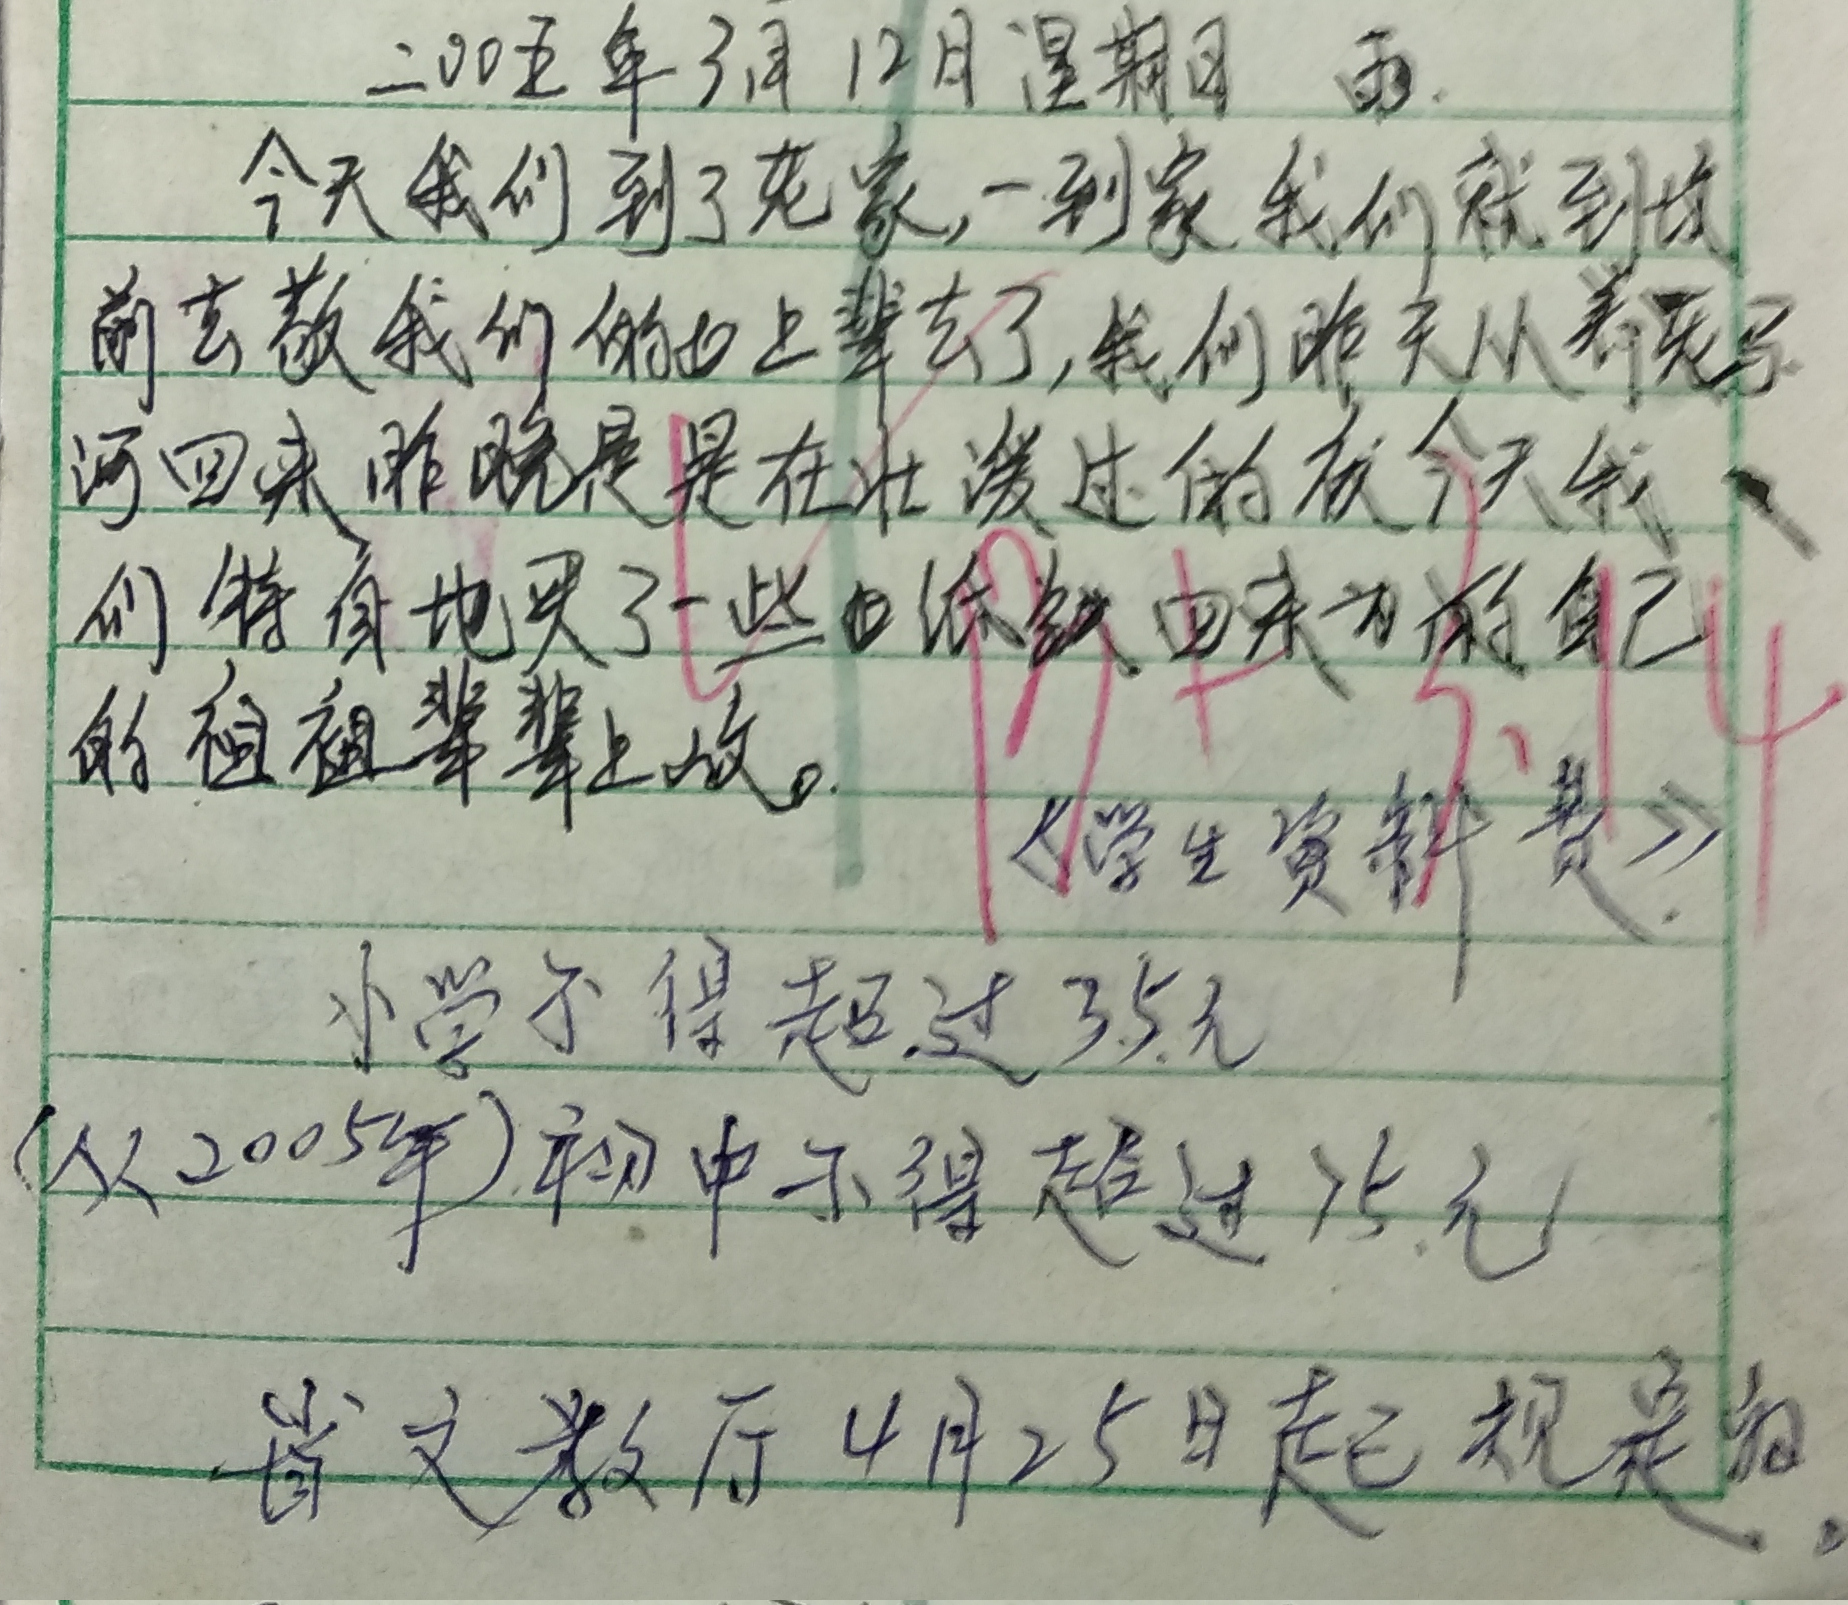 二00五年3月12日星期日 雨.
今天我们到了老家,一到家我们就到坟
前去敬我们的上辈去了,我们昨天从
河回来昨晚是是在壮溪过的夜今天我
们特有地买了一些纸钱回来为的自己
的祖祖辈辈上坟。
阅 + 3.14
《学生资料费》.
小学不得超过35元
(从2005年)初中不得超过75元
省文教厅4月25日起规定的。